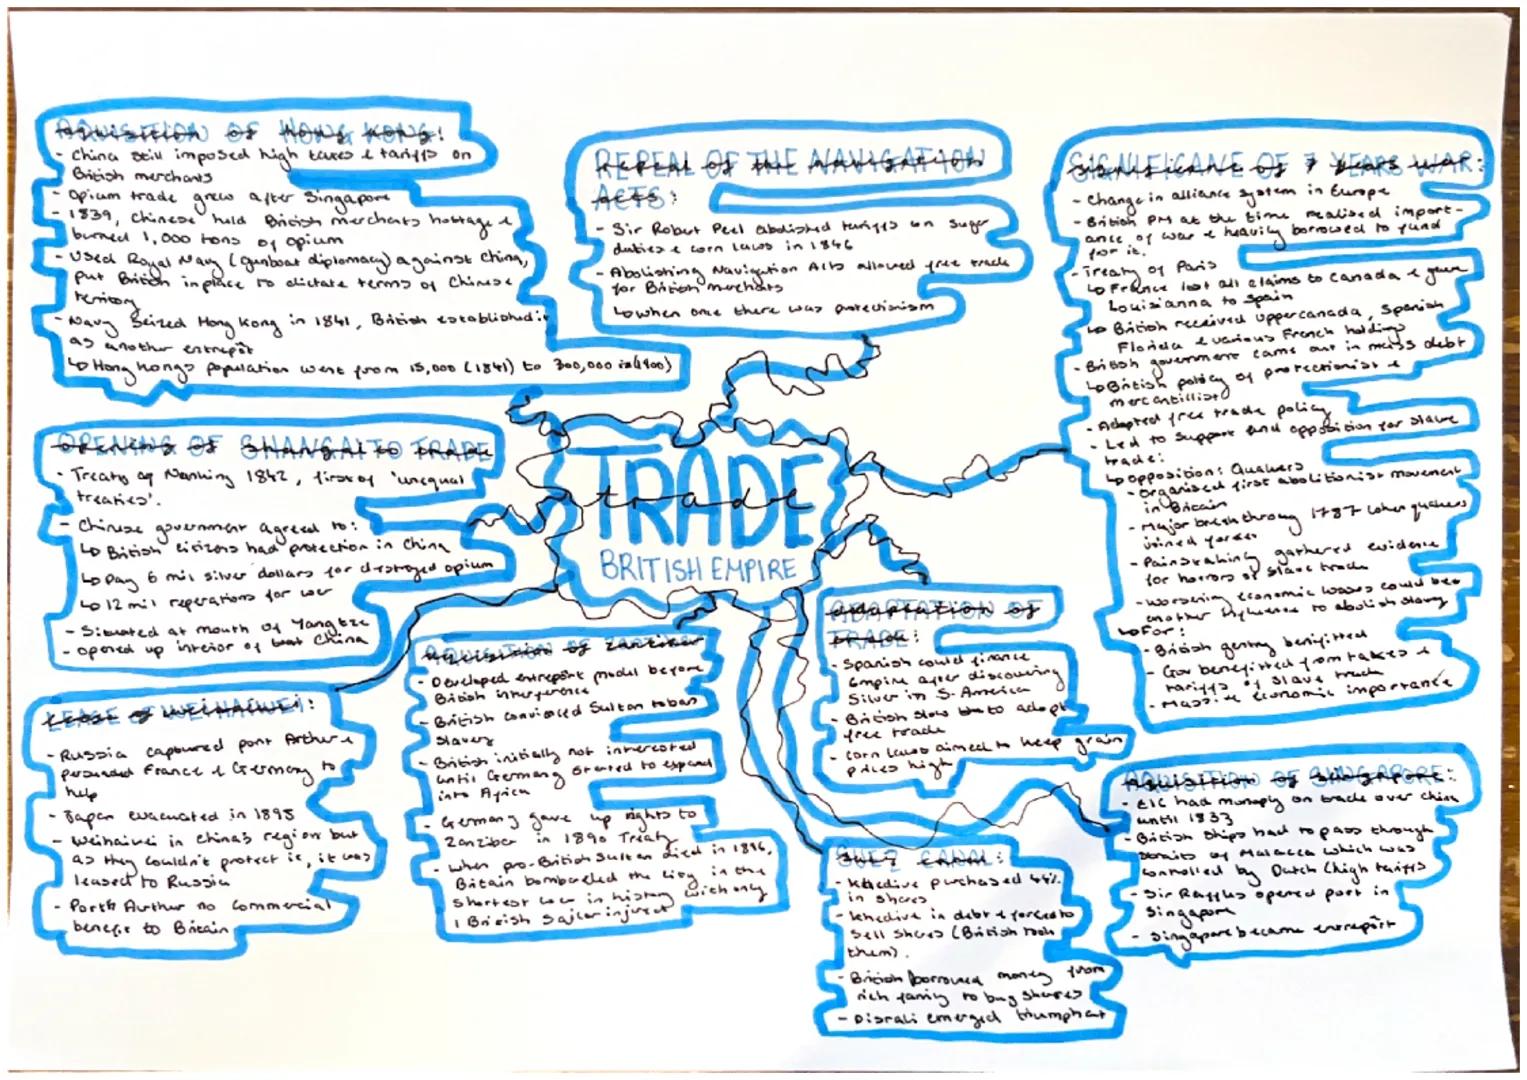 AQUISITION OF HONG KONG:
- China still imposed high taxes & tariffs on
British merchants
- Opium trade grew after Singapore
- 1839, Chinese held British merchants hostage &
burned 1,000 tons of opium
- Used Royal Navy (gunboat diplomacy) against China,
put British in place to dictate terms of Chinese
territory
- Navy seized Hong Kong in 1841, British established it
as another entrepôt
↳ Hong Kongs population went from 15,000 (1841) to 300,000 in (1900)
REPEAL OF THE NAVIGATION
ACTS:
- Sir Robert Peel abolished tariffs on sugar
duties & corn laws in 1846
- Abolishing Navigation Acts allowed free trade
for British merchants
↳ when once there was protectionism
SIGNIFICANE OF 7 YEARS WAR:
- Change in alliance system in Europe
- British PM at the time realised import-
ance of war & heavily borrowed to fund
for it.
- Treaty of Paris
↳ France lost all claims to Canada & gave
Louisianna to Spain
↳ British received upper canada, Spanish
Florida & various French holdings
- British government came out in mass debt
↳ British policy of protectionist &
mercantilist
- Adopted free trade policy
- Led to support and opposition for slave
trade:
↳ opposition: Quakers
- organised first abolitionist movement
in Britain
- Major breakthroug 1787 when quakers
joined forces
- Painstakingly gathered evidence
for horrors of slave trade
- worsening economic woes could be
another influence to abolish slavery
↳ For:
- British gentry benifitted
- Gov benefitted from taxes &
tariffs of slave trade
- Massive economic importance
OPENING OF SHANGAI TO TRADE
- Treaty of Nanking 1842, first of 'unequal
treaties'.
- Chinese government agreed to:
↳ British citizens had protection in China
↳ Pay 6 mil silver dollars for destroyed opium
↳ 12 mil reperations for war
- Situated at mouth of Yangtze
- opened up interior of China
TRADE
BRITISH EMPIRE
LEASE OF WEIHAIWEI:
- Russia captured port Arthur &
persuaded France & Germany to
help
- Japan evacuated in 1895
- Weihaiwei in China's region but
as they couldn't protect it, it was
leased to Russia
- Port Arthur no commercial
benefit to Britain
AQUISITION OF ZANZIBAR
- Developed entrepôt model before
British interference
- British convinced Sultan to ban
slavery
- British initially not interested
until Germany started to expand
into Africa
- Germany gave up rights to
Zanzibar in 1890 Treaty
- when pro-British Sultan died in 1896,
Britain bombarded the city in the
shortest war in history with only
1 British Sailor injured
ADAPTATION OF
TRADE:
- Spanish could finance
Empire after discovering
Silver in S. America
- British slow to adopt
free trade
- Corn laws aimed to keep grain
prices high
SUEZ CANAL:
- Khedive purchased 44%
in shares
- Khedive in debt & forced to
sell shares (British took
them).
- British borrowed money from
rich family to buy shares
- Disrali emerged triumphant
AQUISITION OF SINGAPORE:
- EIC had monoply on trade over china
until 1833
- British ships had to pass through
straits of Malacca which was
controlled by Dutch (high tariffs
- Sir Raffles opened port in
Singapore
- Singapore became entrepôt